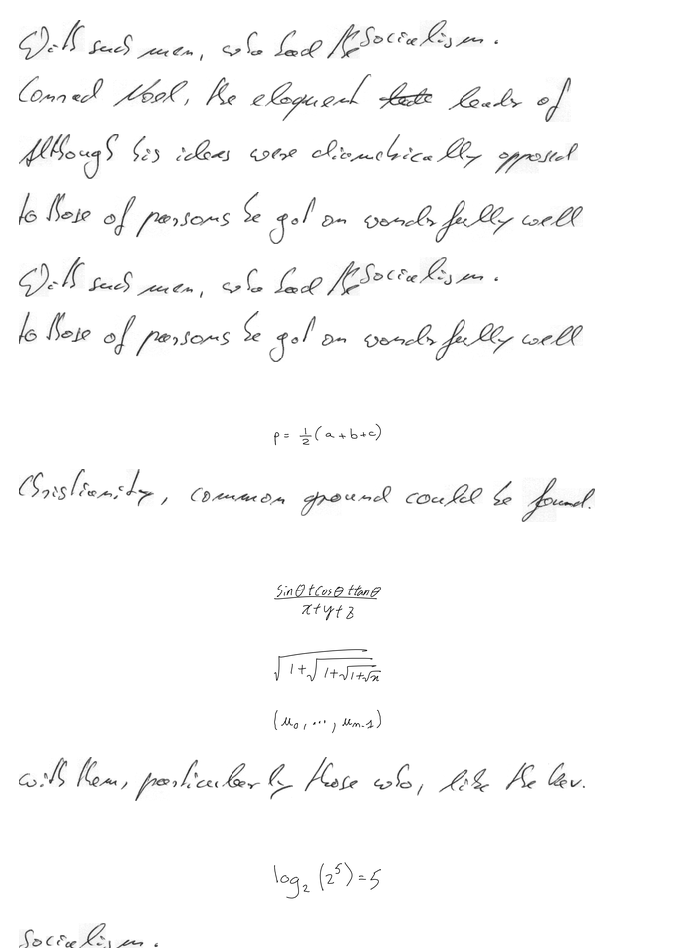 With such men, who had the Socialism.
Conrad Noel, the eloquent leader of
Although his ideas were diametrically opposed
to those of parsons he got on wonderfully well
With such men, who had the Socialism.
to those of parsons he got on wonderfully well
p = \frac{1}{2}(a+b+c)
Christianity, common ground could be found.
\frac{\sin\theta+\cos\theta+\tan\theta}{x+y+z}
\sqrt{1+\sqrt{1+\sqrt{1+\sqrt{x}}}}
(u_0, ..., u_{n-1})
with them, particularly those who, like the Rev.
log_2(2^5)=5
Socialism.